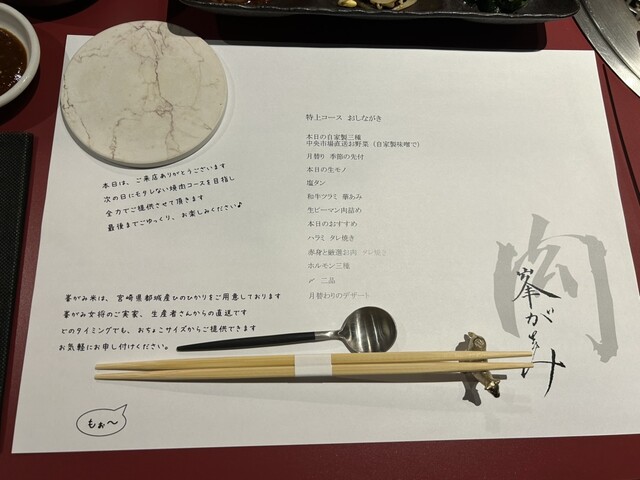 特上コース おしながき
本日の自家製三種
中央市場直送お野菜（自家製味噌で）
月替り 季節の先付
本日の生モノ
塩タン
和牛ツラミ 華あみ
生ピーマン肉詰め
本日のおすすめ
ハラミ タレ焼き
赤身と厳選お肉 タレ焼き
ホルモン三種
〆 二品
月替わりのデザート
本日は、ご来店ありがとうございます
次の日にモタレない焼肉コースを目指し
全力でご提供させて頂きます
最後までごゆっくり、お楽しみください♪
峯がみ米は、宮崎県都城産ひのひかりをご用意しております
峯がみ女将のご実家、生産者さんからの直送です
どのタイミングでも、おちょこサイズからご提供できます
お気軽にお申し付けください。
もぉ〜
肉
峯がみ